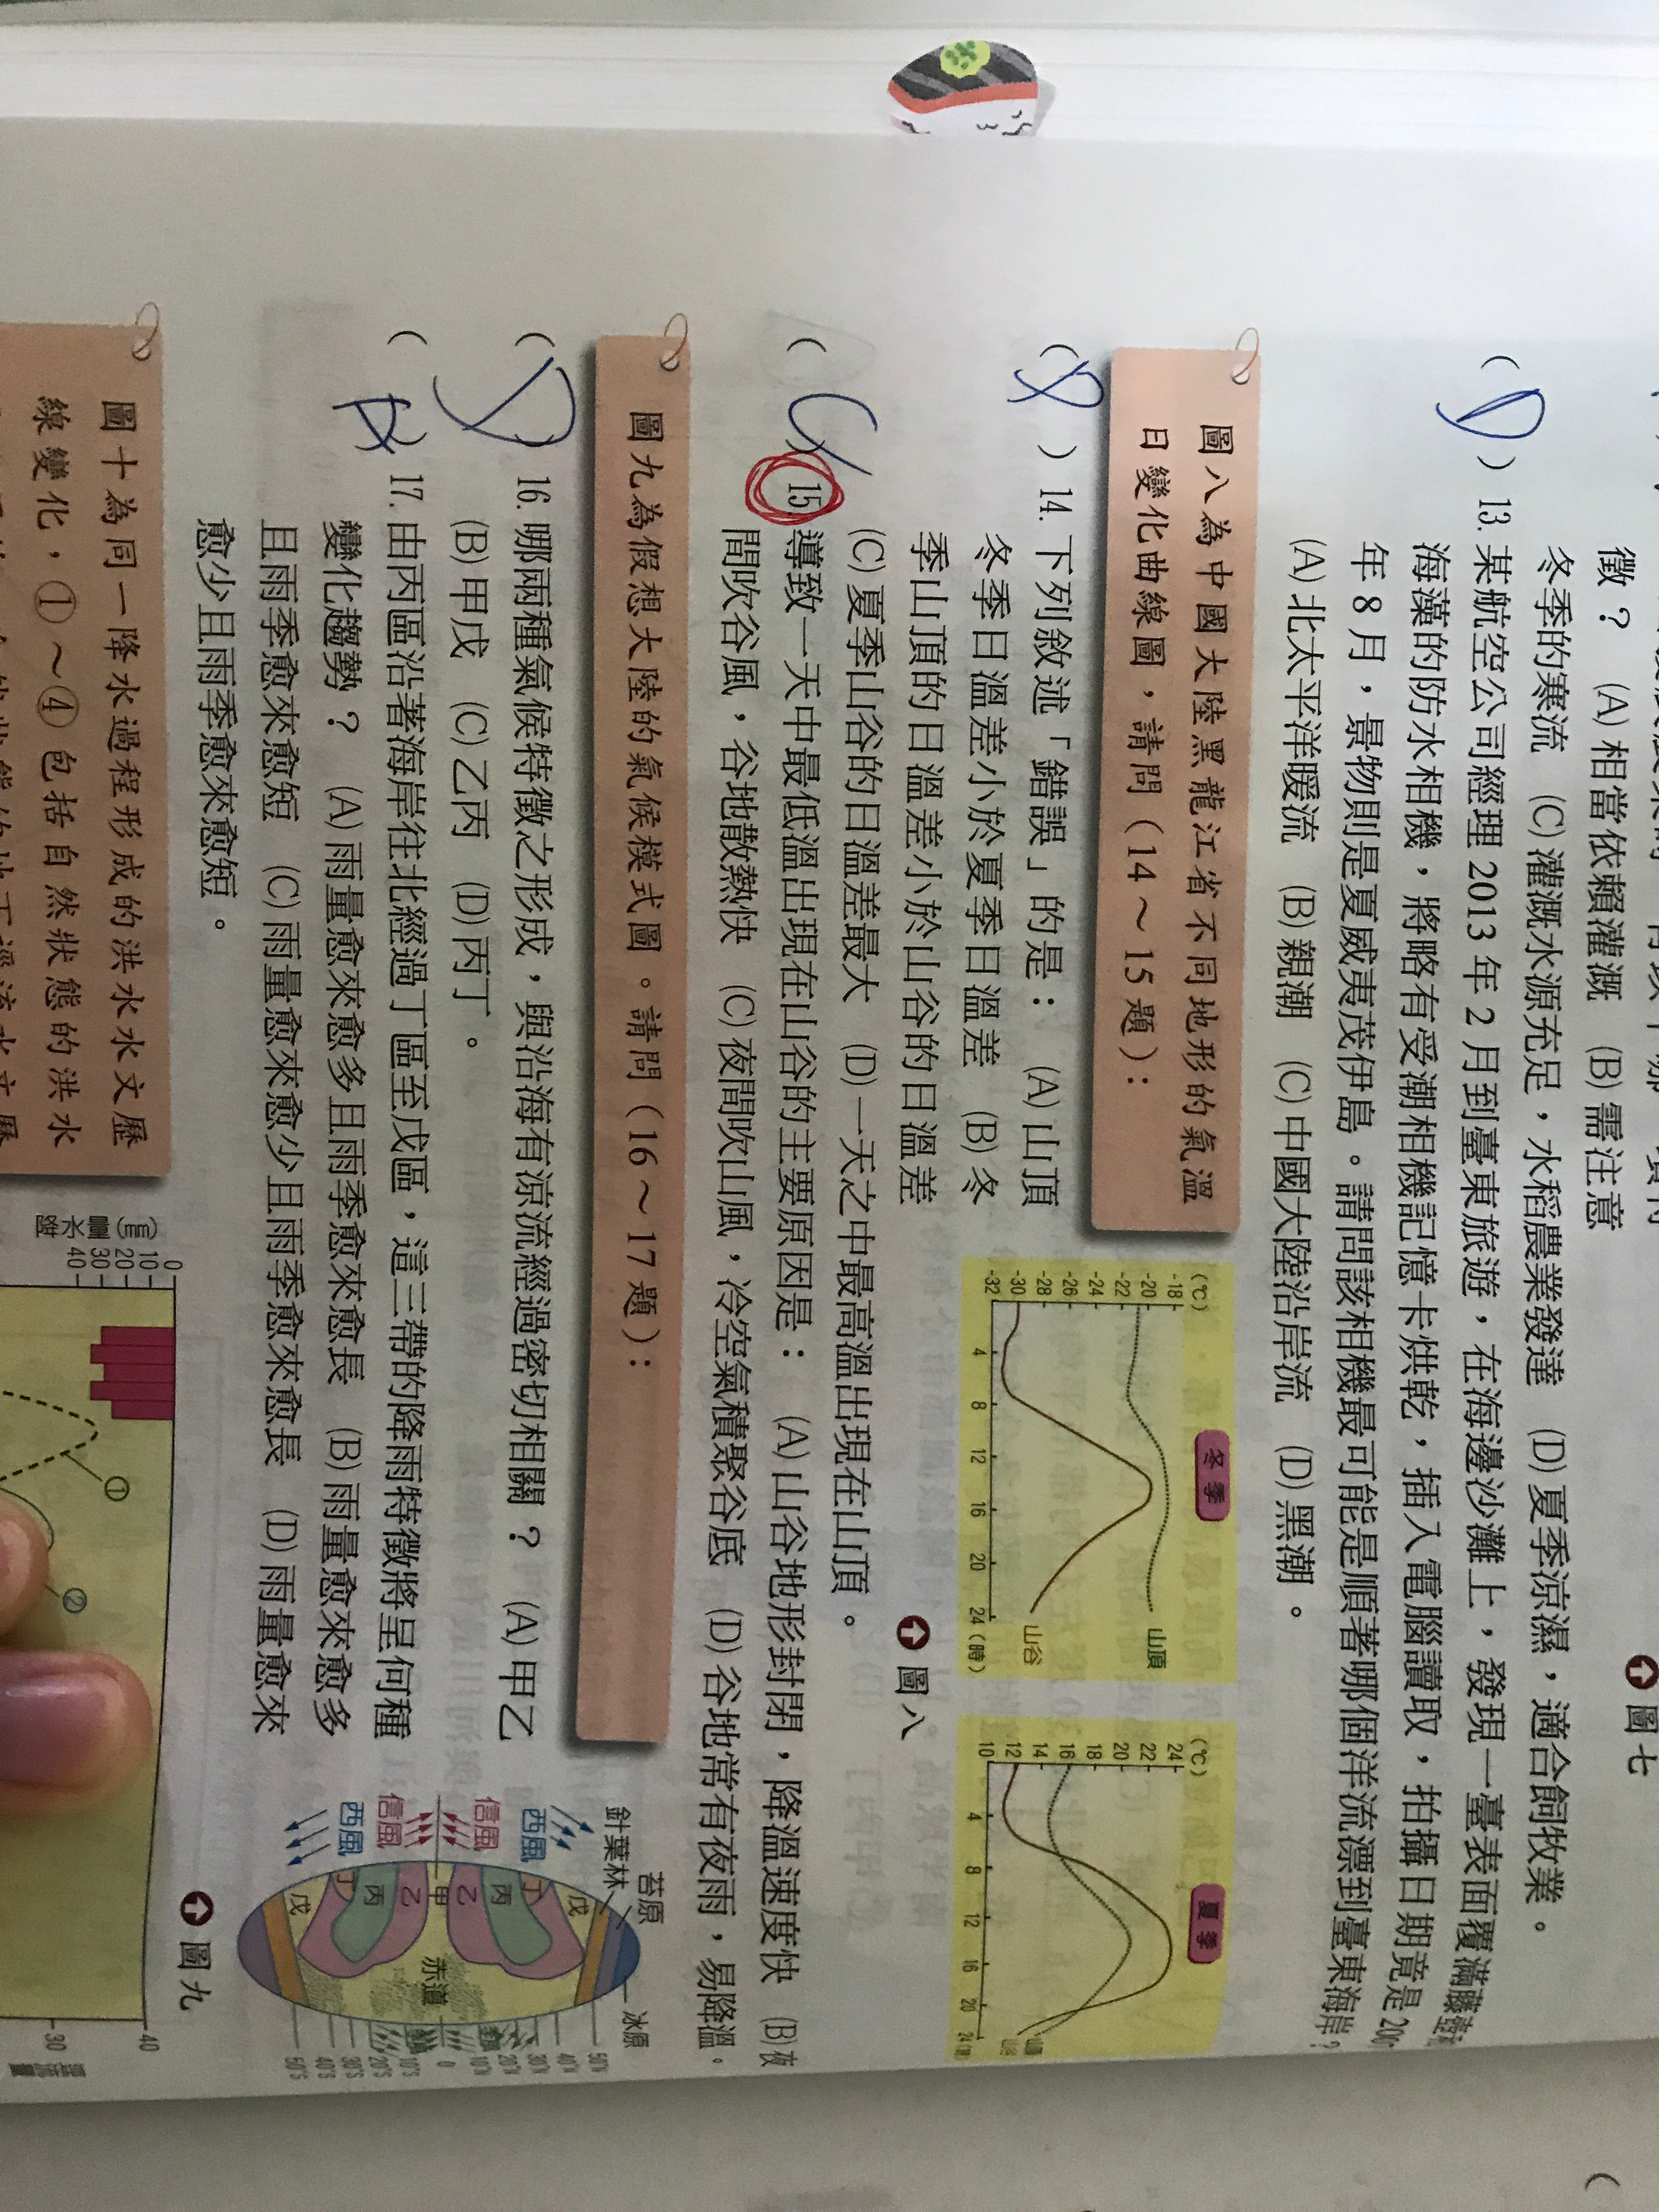 徵？ (A)相當依賴灌溉 (B)需注意
冬季的寒流 (C)灌溉水源充足，水稻農業發達 (D)夏季涼濕，適合飼牧業。
(D) 13. 某航空公司經理2013年2月到臺東旅遊，在海邊沙灘上，發現一臺表面覆滿藤壺和
海藻的防水相機，將略有受潮相機記憶卡烘乾，插入電腦讀取，拍攝日期竟是
年8月，景物則是夏威夷茂伊島。請問該相機最可能是順著哪個洋流漂到臺東海岸？
(A)北太平洋暖流 (B)親潮 (C)中國大陸沿岸流 (D)黑潮。
圖七
圖八為中國大陸黑龍江省不同地形的氣溫
日變化曲線圖，請問（14～15題）：
( ) 14. 下列敘述「錯誤」的是： (A)山頂
冬季日溫差小於夏季日溫差 (B)冬
季山頂的日溫差小於山谷的日溫差
(C)夏季山谷的日溫差最大 (D)一天之中最高溫出現在山頂。
冬季
(℃)
-18
-20
-22
-24
-26
-28
-30
-32
4 8 12 16 20 24(時)
山頂
山谷
夏季
(℃)
24
22
20
18
16
14
12
10
4 8 12 16 20 24(時)
山頂
山谷
圖八
(C) 15. 導致一天中最低溫出現在山谷的主要原因是： (A)山谷地形封閉，降溫速度快 (B)夜
間吹谷風，谷地散熱快 (C)夜間吹山風，冷空氣積聚谷底 (D)谷地常有夜雨，易降溫。
圖九為假想大陸的氣候模式圖。請問（16～17題）：
(D) 16. 哪兩種氣候特徵之形成，與沿海有涼流經過密切相關？ (A)甲乙
(B)甲戊 (C)乙丙 (D)丙丁。
( ) 17. 由丙區沿著海岸往北經過丁區至戊區，這三帶的降雨特徵將呈何種
變化趨勢？ (A)雨量愈來愈多且雨季愈來愈長 (B)雨量愈來愈多
且雨季愈來愈短 (C)雨量愈來愈少且雨季愈來愈長 (D)雨量愈來
愈少且雨季愈來愈短。
苔原
針葉林
冰原
西風
信風
信風
西風
戊
丁
丙
乙
甲
乙
丙
丁
戊
赤道
50°N
40°N
30°N
20°N
10°N
0
10°S
20°S
30°S
40°S
50°S
圖九
圖十為同一降水過程形成的洪水水文歷
線變化，①～④包括自然狀態的洪水
0
10
20
30
40
①
②
40
30